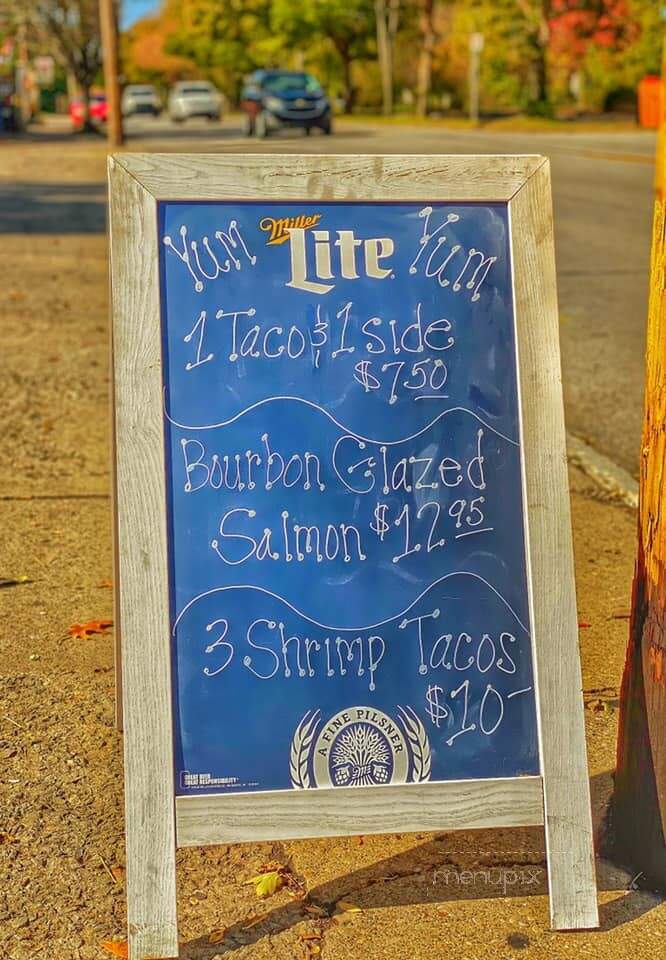 Yum Miller Lite Yum
1 Taco & 1 side
$7.50
Bourbon Glazed
Salmon $12.95
3 Shrimp Tacos
$10-
A FINE PILSNER
GREAT BEER
GREAT RESPONSIBILITY
menupix